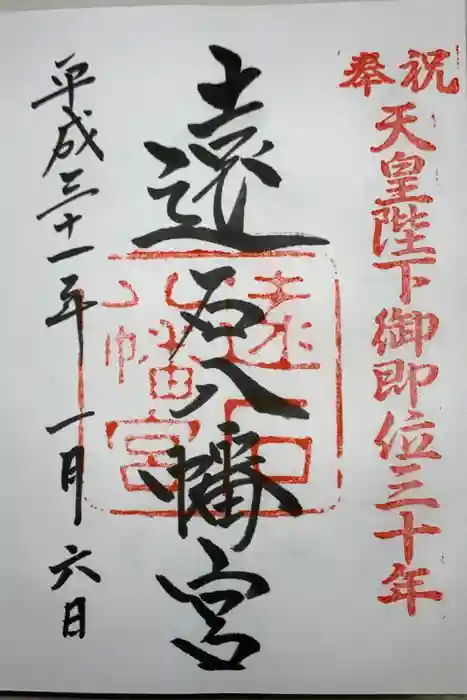 奉祝
天皇陛下御即位三十年
遠石八幡宮
遠石八幡宮
平成三十一年 一月 六日